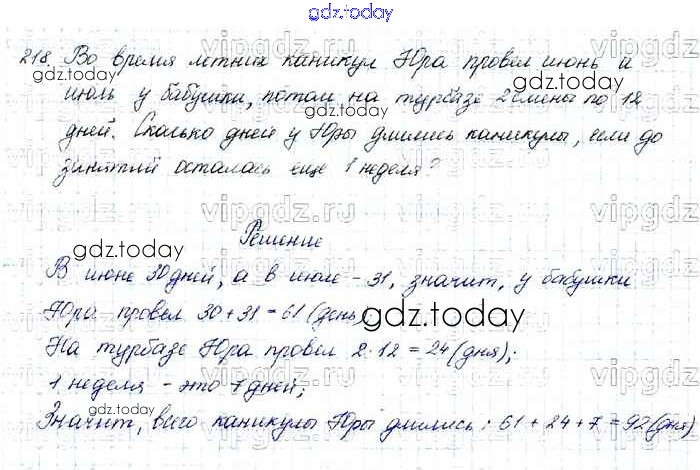 gdz.today
218. Во время летних каникул Юра провел июнь и
июль у бабушки, потом на турбазе 2 смены по 12
дней. Сколько дней у Юры длились каникулы, если до
занятий осталась еще 1 неделя?
Решение
В июне 30 дней, а в июле - 31, значит, у бабушки
Юра провел 30 + 31 = 61 (день);
На турбазе Юра провел 2 · 12 = 24 (дня);
1 неделя - это 7 дней;
Значит, всего каникулы Юры длились: 61 + 24 + 7 = 92 (дня)
gdz.today
gdz.today
gdz.today
gdz.today
gdz.today
vipgdz.ru
vipgdz.ru
vipgdz.ru
vipgdz.ru
vipgdz.ru
vipgdz.ru